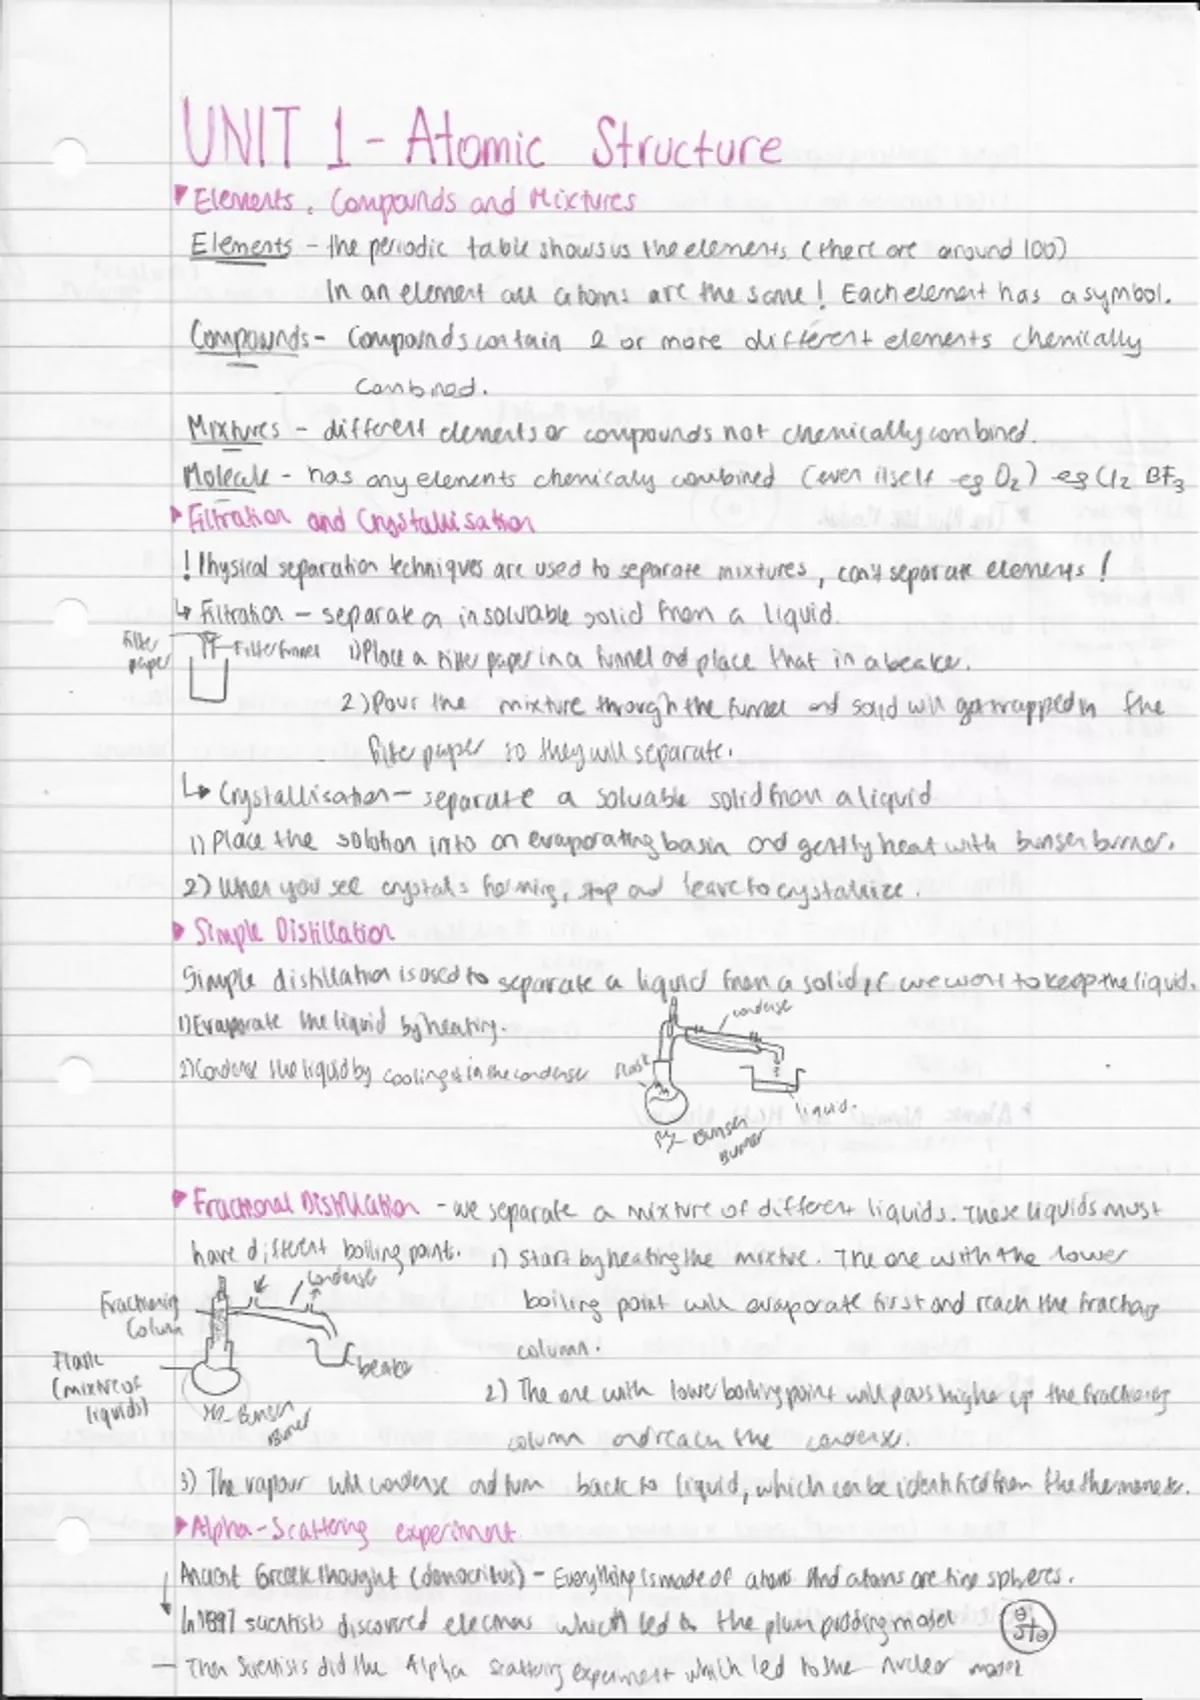 UNIT 1 - Atomic Structure
Elements, Compounds and Mixtures
Elements - the periodic table shows us the elements (there are around 100)
In an element all atoms are the same! Each element has a symbol.
Compounds - Compounds contain 2 or more different elements chemically
combined.
Mixtures - different elements or compounds not chemically combined.
Molecule - has any elements chemicaly combined (even itself eg O2) eg Cl2 BF3
Filtration and Crystallisation
! Physical separation techniques are used to separate mixtures, can't separate elements!
↳ Filtration - separate a insoluable solid from a liquid.
Filter paper
Filter funnel
1) Place a filter paper in a funnel and place that in a beaker.
2) Pour the mixture through the funnel and solid will get trapped in the
filter paper so they will separate.
↳ Crystallisation - separate a soluable solid from a liquid
1) Place the solution into an evaporating basin and gently heat with bunsen burner.
2) When you see crystals forming, stop and leave to crystallize.
Simple Distillation
Simple distillation is used to separate a liquid from a solid, if we want to keep the liquid.
1) Evaporate the liquid by heating.
2) Condense the liquid by cooling it in the condenser
condense
flask
liquid.
Bunsen
Burner
Fractional Distillation - we separate a mixture of different liquids. These liquids must
have different boiling points. 1) Start by heating the mixture. The one with the lower
boiling point will evaporate first and reach the fractioning
column.
Fractioning
Column
condense
beaker
Flask
(mixture of
liquids)
Bunsen
Burner
2) The one with lower boiling point will pass higher up the fractioning
column and reach the condense.
3) The vapour will condense and turn back to liquid, which can be identified from the thermometer.
Alpha-Scattering experiment
Ancient Greek thought (democritus) - Everything is made of atoms and atoms are tiny spheres.
In 1897 scientists discovered electrons which led to the plum pudding model
- Then Scientists did the Alpha scattering experiment which led to the nuclear model